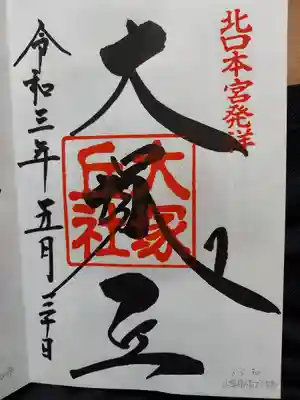 北口本宮発祥
大塚丘
大塚
丘社
令和三年五月三十日